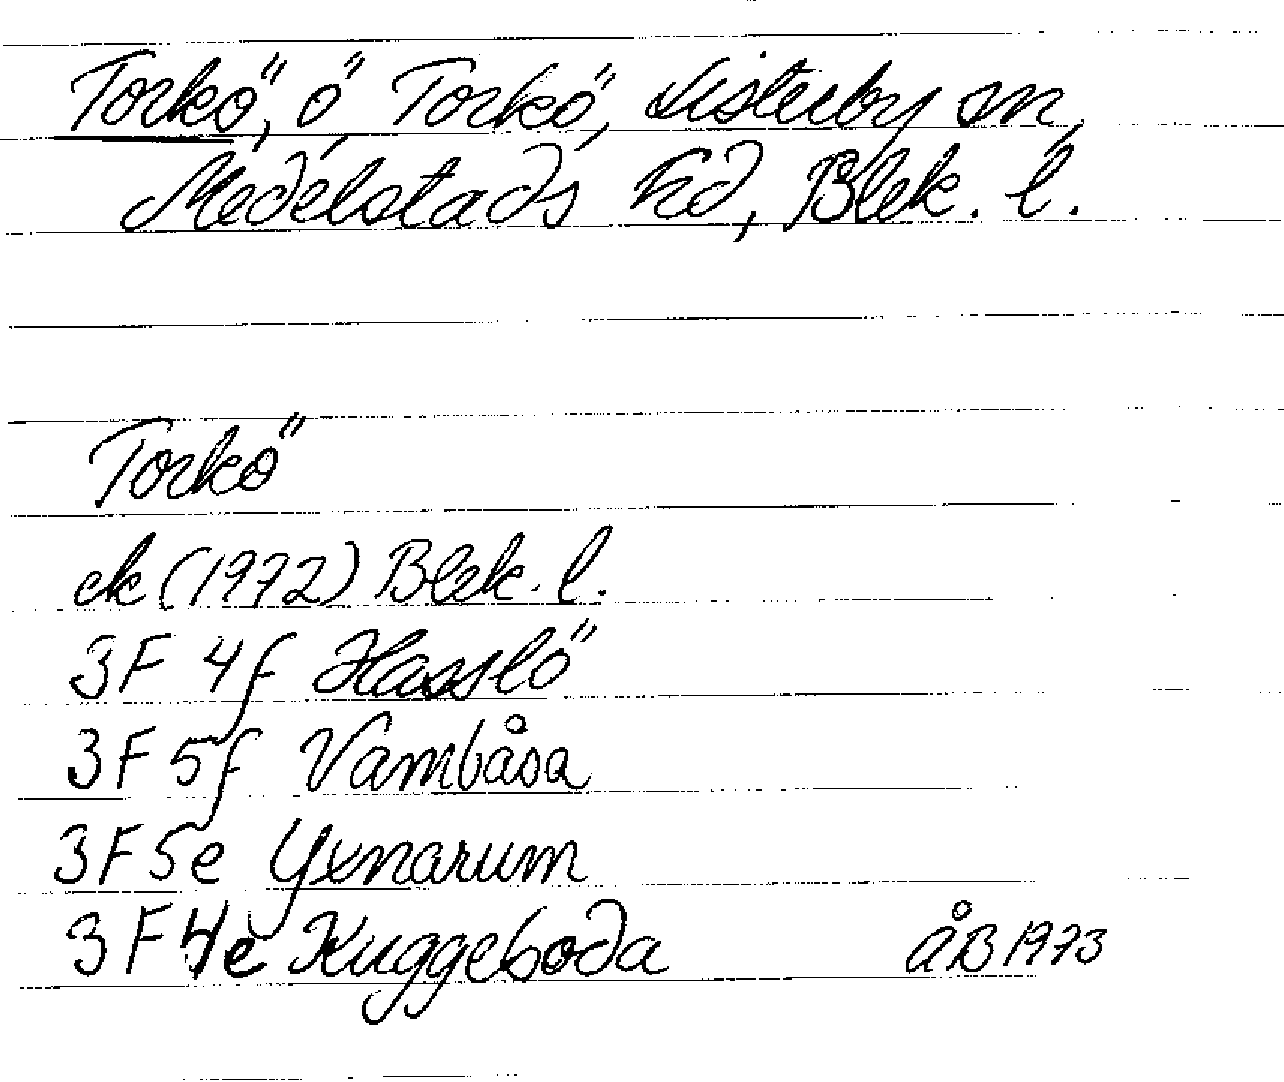 Torkö, ö Torkö, Listerby sn,
Medelstads hd, Blek. l.
Torkö
ek (1972) Blek. l.
3F 4f Hasslö
3F 5f Vambåsa
3F 5e Yxnarum
3F 4e Kuggeboda ÅB 1973